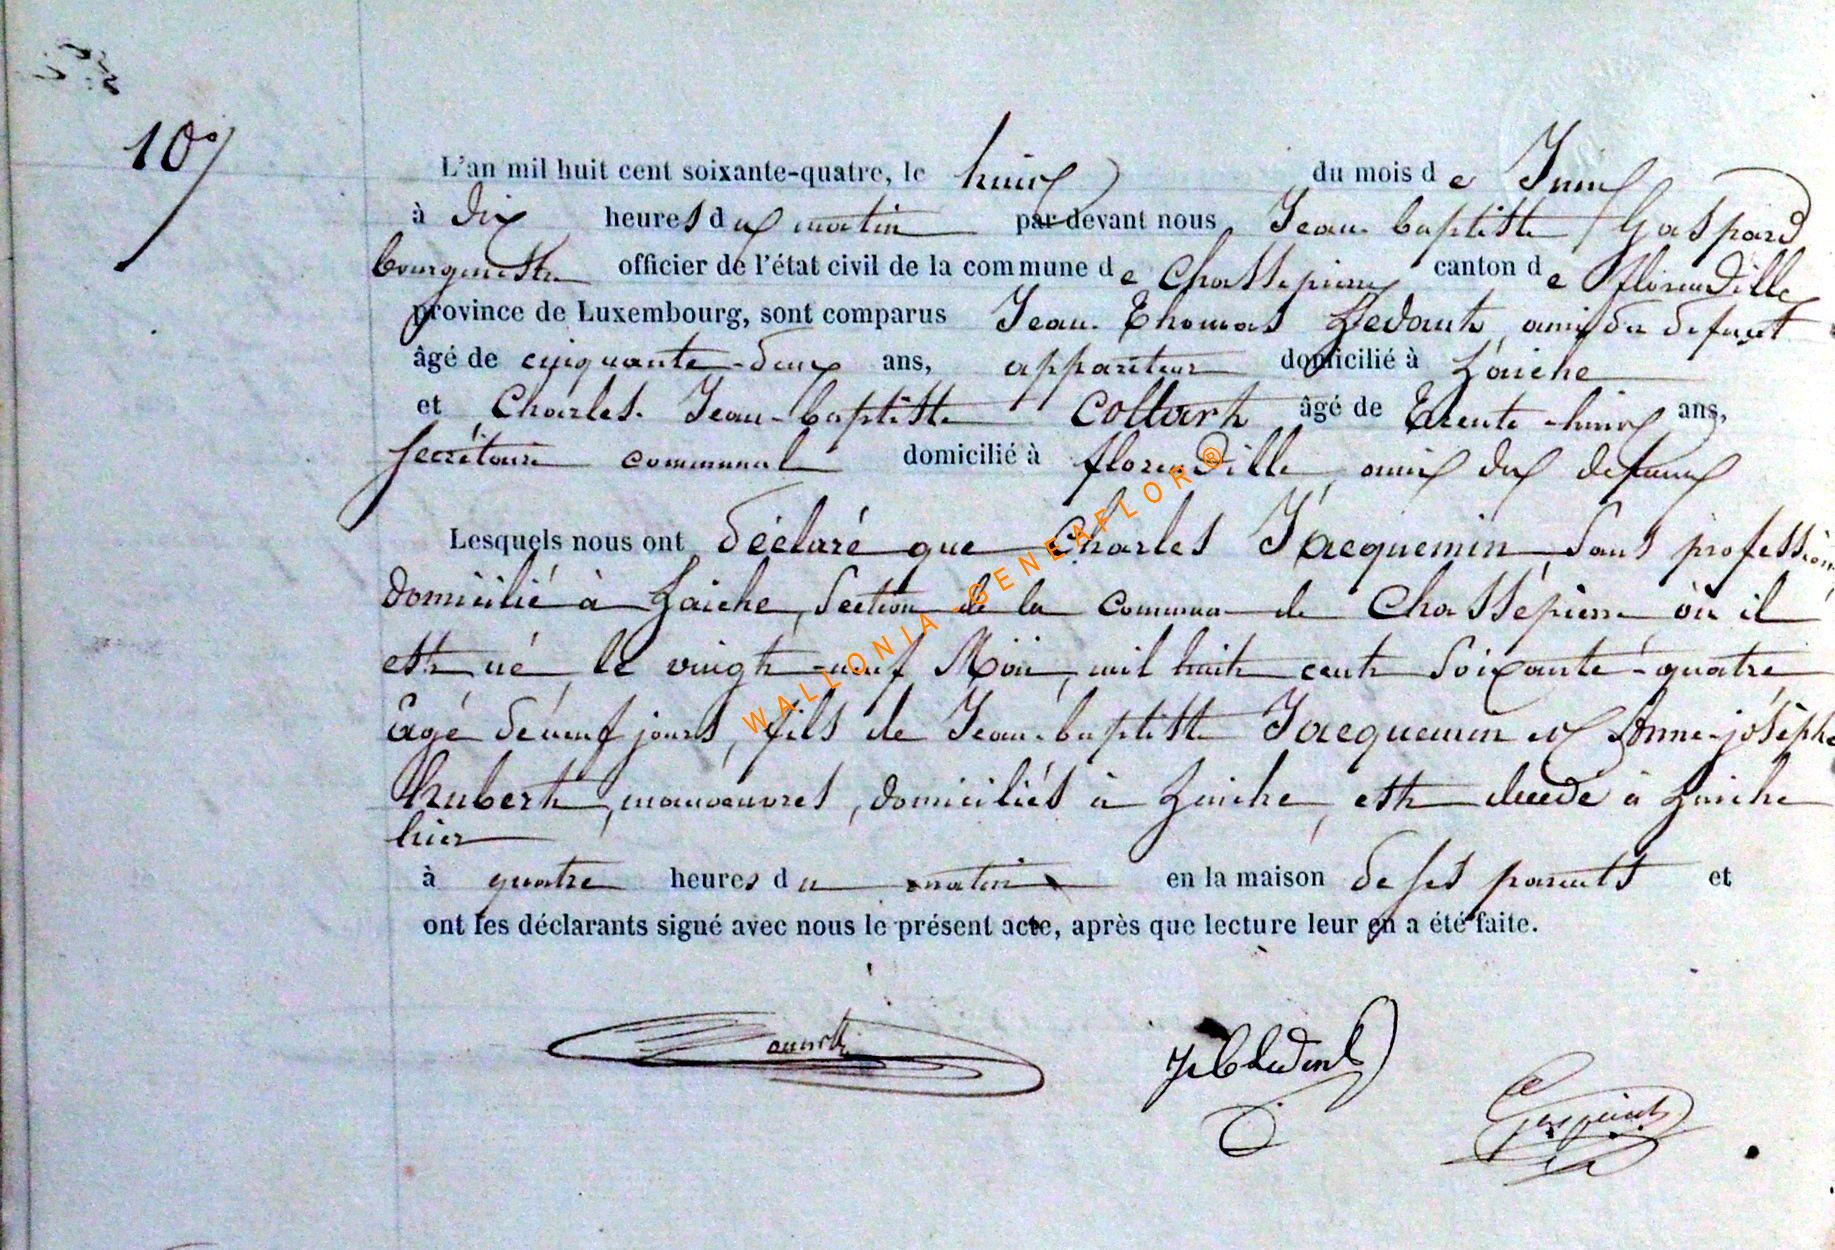 10
L'an mil huit cent soixante-quatre, le huit du mois de Juin
à dix heures du matin par devant nous Jean-baptiste Gaspard
bourgmestre officier de l'état civil de la commune de Chassepierre canton de florenville
province de Luxembourg, sont comparus Jean Thomas Ledent, ami du defunt
âgé de cinquante-deux ans, appariteur domicilié à Laiche
et Charles Jean-baptiste Collart âgé de Trente-huit ans,
secrétaire communal domicilié à florenville, ami du defunt
Lesquels nous ont déclaré que Charles Jacquemin, sans profession
domicilié à Laiche, section de la commune de Chassepierre où il
est né, le vingt-neuf Mai, mil huit cent soixante-quatre
âgé de neuf jours, fils de Jean-baptiste Jacquemin et Anne-joséphe
hubert, manoeuvres, domiciliés à Laiche, est décédé à Laiche
hier
à quatre heures du matin en la maison de ses parents et
ont les déclarants signé avec nous le présent acte, après que lecture leur en a été faite.
WALLONIA-GENEAFLOR®